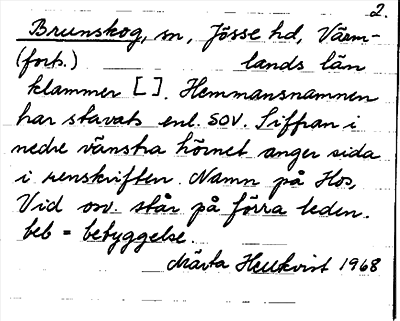 2.
Brunskog, sn, Jösse hd, Värm-
(forts.) lands län
klammer [ ]. Hemmansnamnen
har stavats enl. SOV. Siffran i
nedre vänstra hörnet anger sida
i renskriften. Namn på Hos,
Vid osv. står på förra leden.
beb = bebyggelse.
Märta Hellkvist 1968